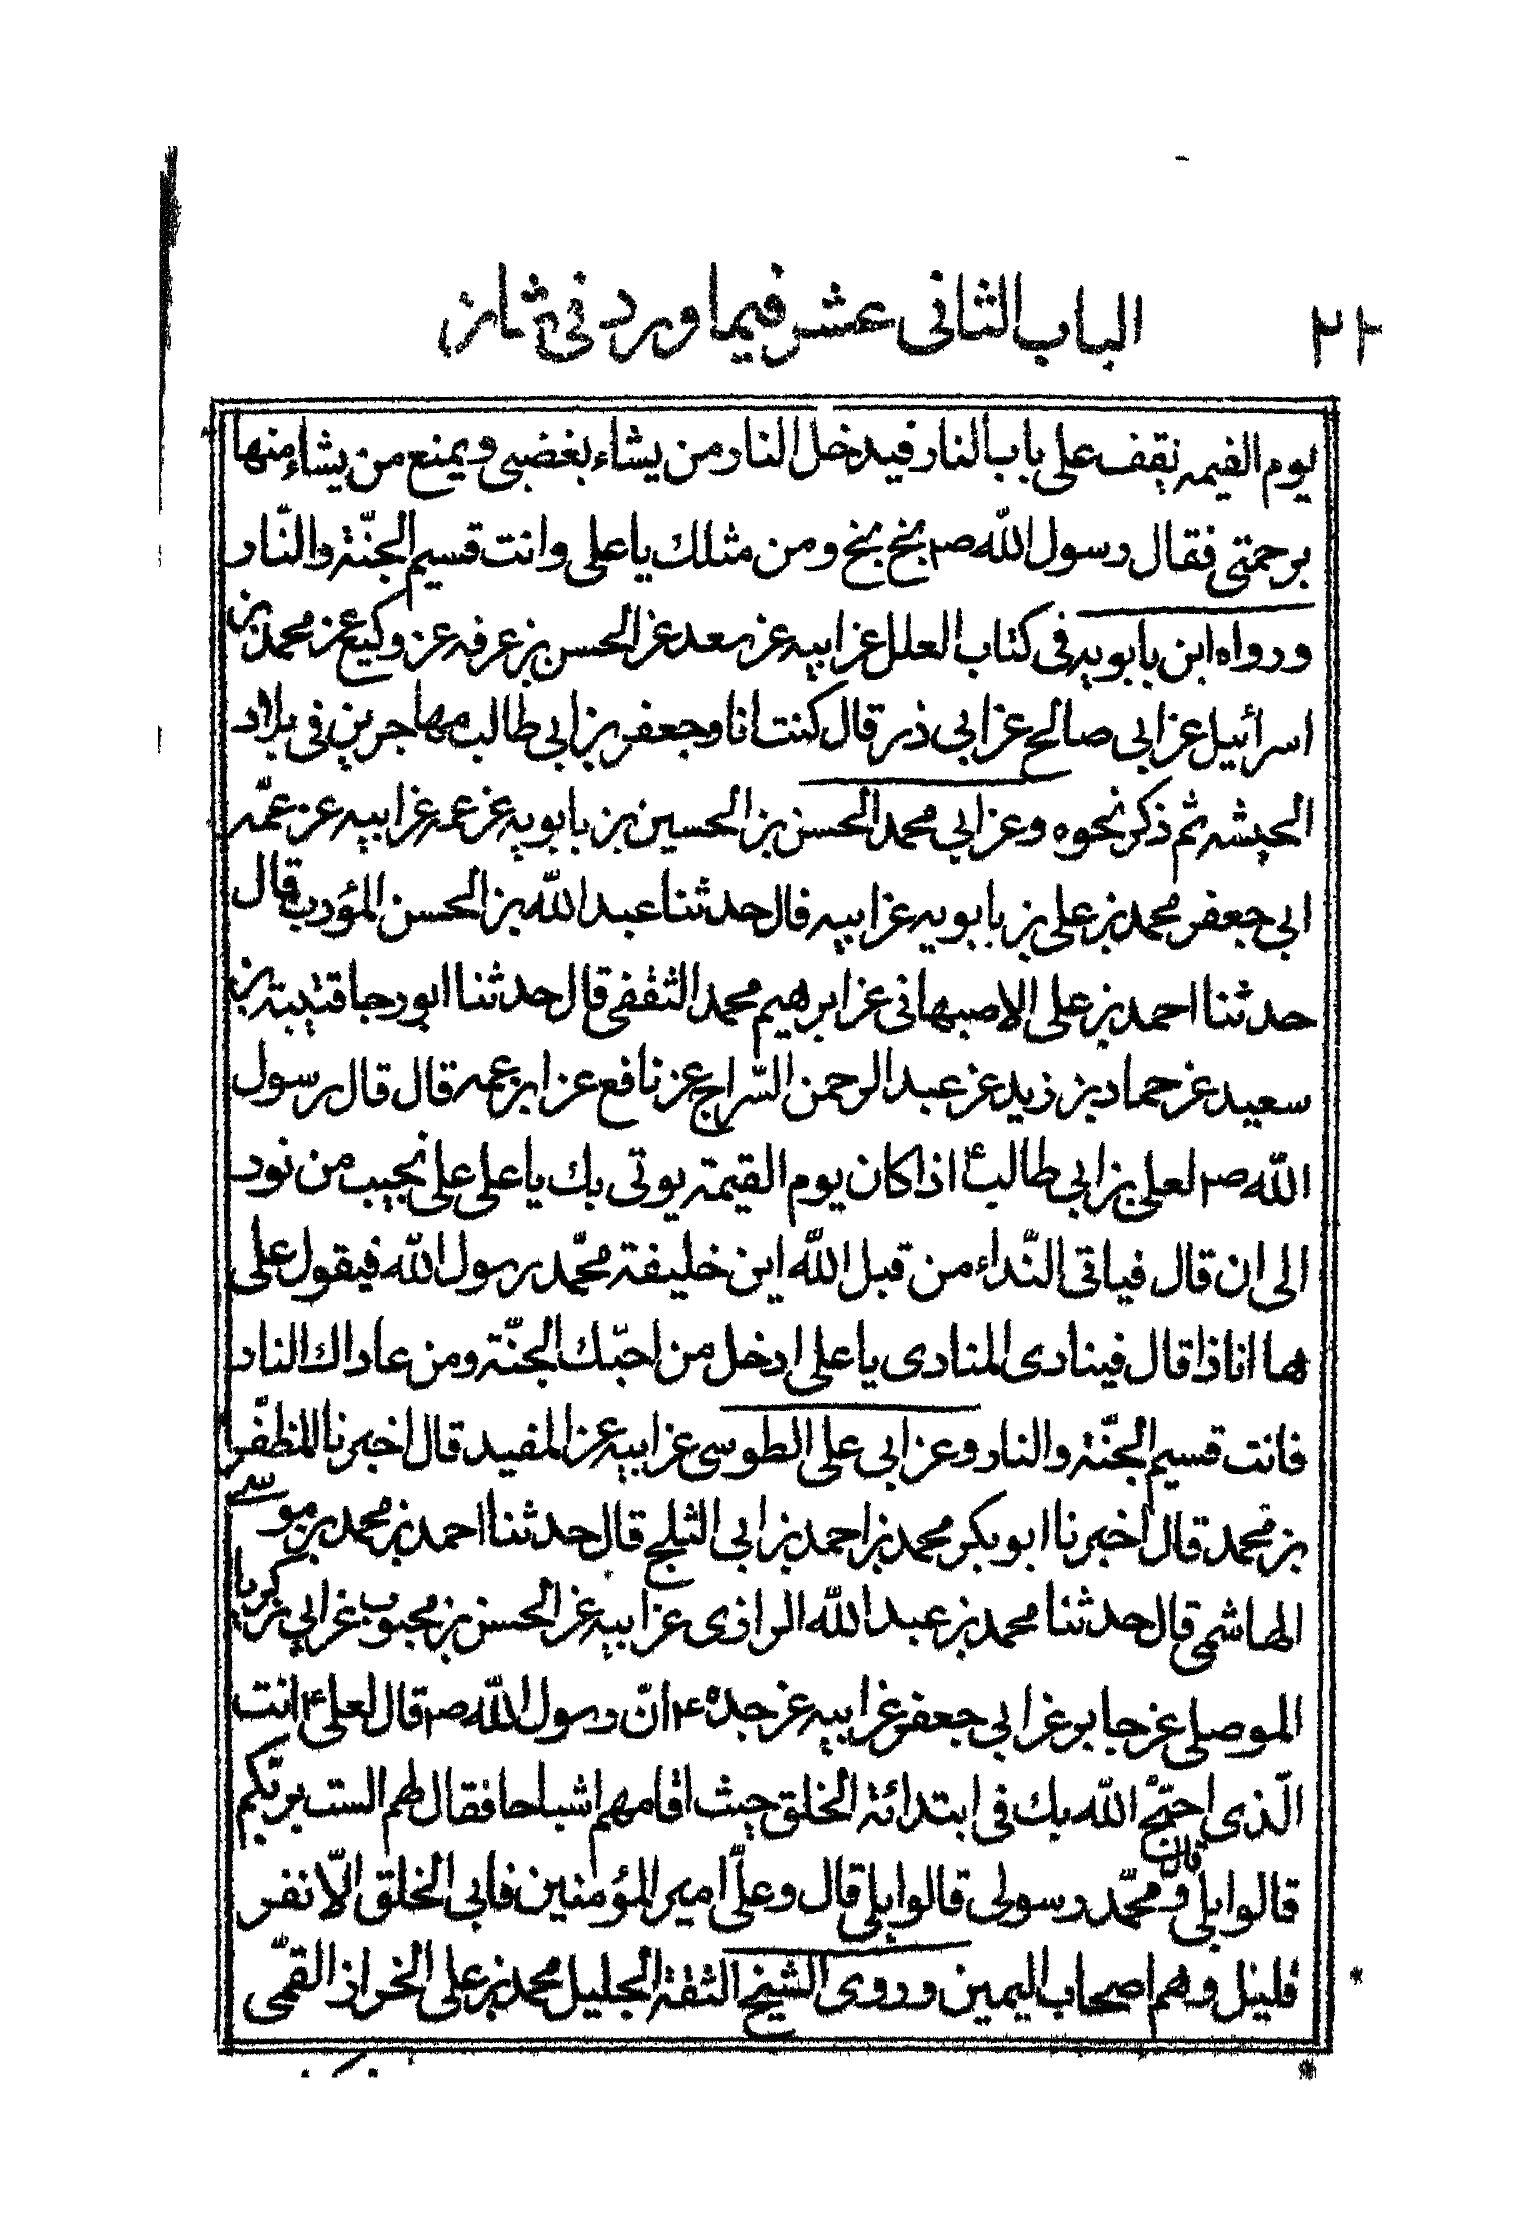 ٢٢ الباب الثانى عشر فيما ورد فى شان
يوم القيمه نقف على باب النار فيدخل النار من يشاء بغضبى ويمنع من يشاء منها
برحمتى فقال رسول الله ص بخ بخ ومن مثلك ياعلى وانت قسيم الجنّة والنّار
ورواه ابن بابويه فى كتاب العلل عن ابيه عن سعد عن الحسن بن عرفه عن وكيع عن محمد بن
اسرائيل عن ابى صالح عن ابى ذر قال كنت انا وجعفر بن ابى طالب مهاجرين فى بلاد
الحبشه ثم ذكر نحوه وعن ابى محمد الحسن بن الحسين بن بابويه عن عمه عن ابيه عن عمّه
ابى جعفر محمد بن على بن بابويه عن ابيه قال حدثنا عبد الله بن الحسن المؤدب قال
حدثنا احمد بن على الاصبهانى عن ابرهيم محمد الثقفى قال حدثنا ابو رجا قتيبة بن
سعيد عن حماد بن زيد عن عبد الرحمن السّراج عن نافع عن ابن عمر قال قال رسول
الله ص لعلى بن ابى طالب ع اذا كان يوم القيمة يوتى بك يا على على نجيب من نور
الى ان قال فياتى النّداء من قبل الله اين خليفة محمّد رسول الله فيقول على
ها انا ذا قال فينادى المنادى ياعلى ادخل من احبّك الجنّة ومن عاداك النار
فانت قسيم الجنّة والنار وعن ابى على الطوسى عن ابيه عن المفيد قال اخبرنا المظفّر
بن محمد قال اخبرنا ابو بكر محمد بن احمد بن ابى الثلج قال حدثنا احمد بن محمد بن موسى
الهاشمى قال حدثنا محمد بن عبد الله الرازى عن ابيه عن الحسن بن محبوب عن ابى زكريا
الموصلى عن جابر عن ابى جعفر عن ابيه عن جده ع انّ رسول الله ص قال لعلى ع انت
الّذى احتجّ الله بك فى ابتدائة الخلق حيث اقامهم اشباحا فقال لهم الست بربّكم
قالوا بلى قال ومحمّد رسولى قالوا بلى قال وعلىّ امير المؤمنين فابى الخلق الّا نفر
قليل وهم اصحاب اليمين وروى الشيخ الثقة الجليل محمد بن على الخراز القمّى